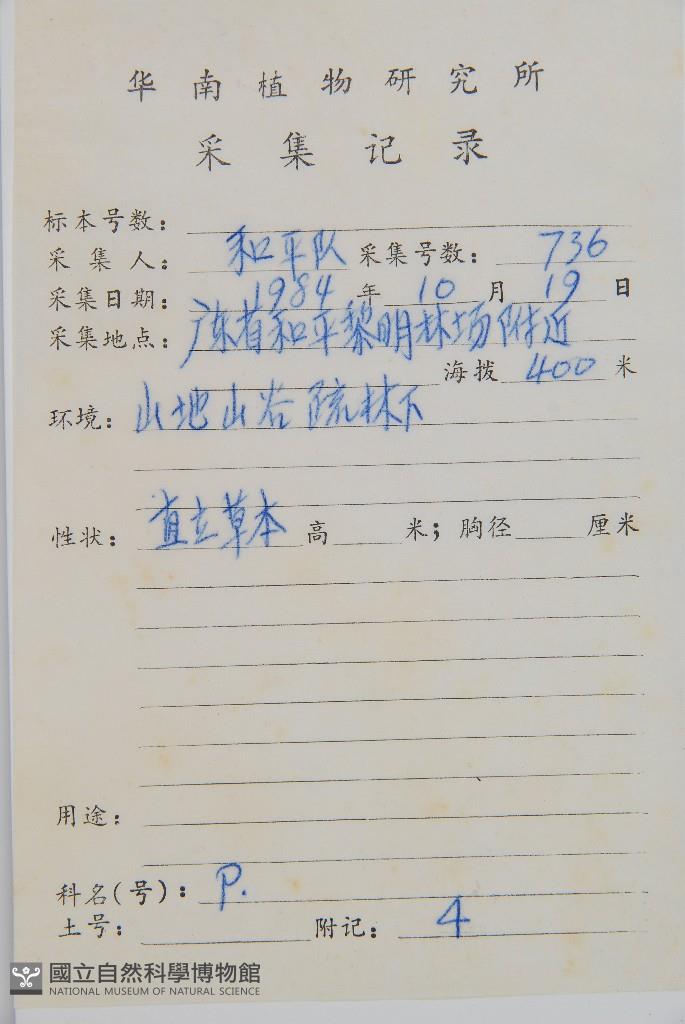 华南植物研究所
采集记录
标本号数：
采集人： 和平队 采集号数： 736
采集日期： 1984 年 10 月 19 日
采集地点： 广东省和平黎明林场附近
海拨 400 米
环境： 山地山谷疏林下
性状： 直立草本 高 米；胸径 厘米
用途：
科名(号)： P.
土号： 附记： 4
國立自然科學博物館
NATIONAL MUSEUM OF NATURAL SCIENCE